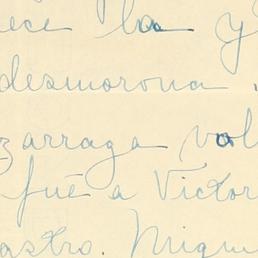 ece la y
desmorona.
zarraga vol
fué a Victor
astro. Migu